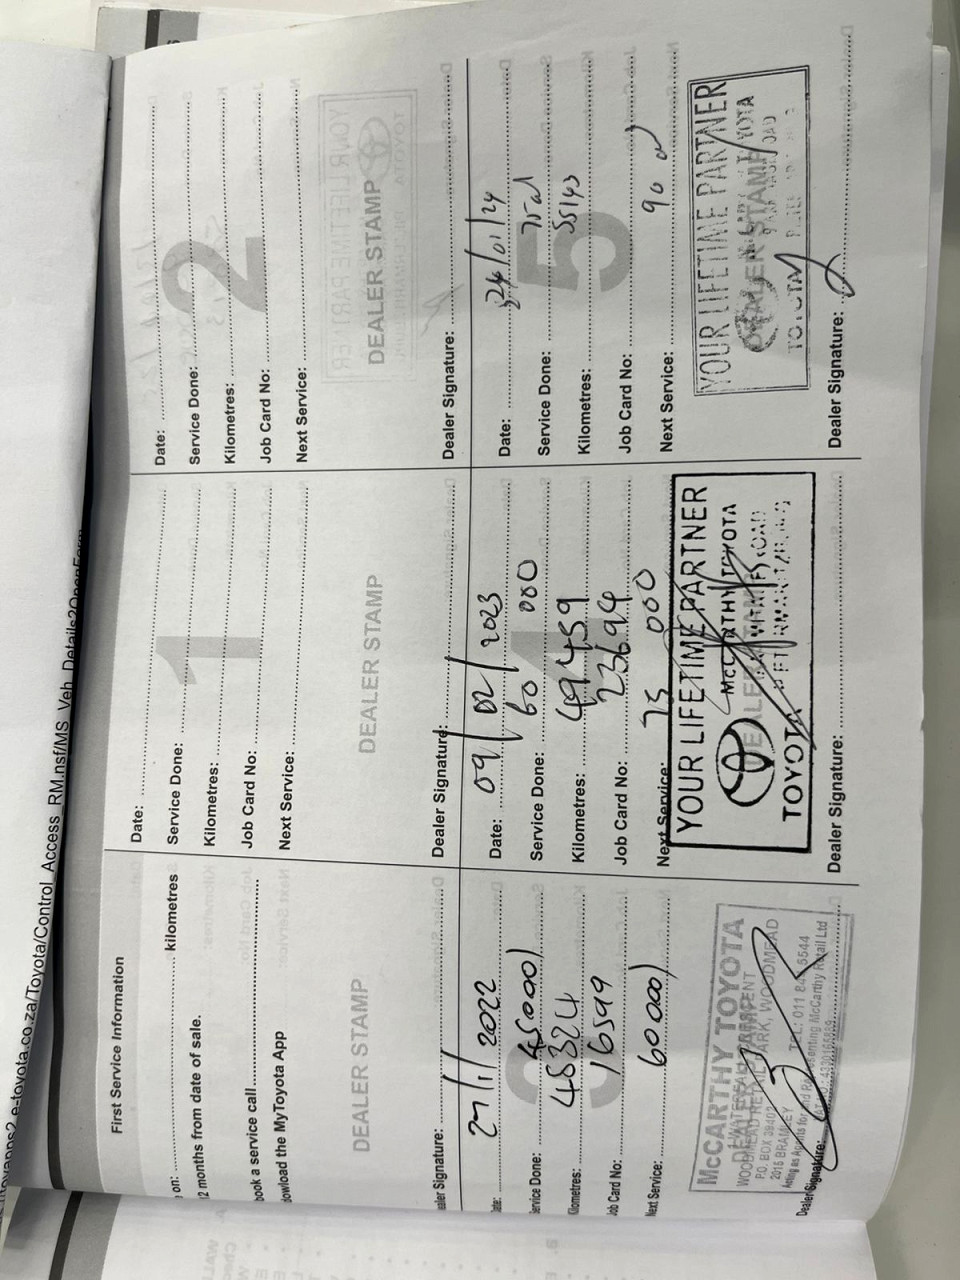 e-toyota.co.za/Toyota/Control_Access_RM.nsf/MS_Veh_Details?OpenForm
First Service Information
on: kilometres
12 months from date of sale.
book a service call
download the MyToyota App
DEALER STAMP
Dealer Signature:
1
Date:
Service Done:
Kilometres:
Job Card No:
Next Service:
DEALER STAMP
Dealer Signature:
2
Date:
Service Done:
Kilometres:
Job Card No:
Next Service:
DEALER STAMP
Dealer Signature:
3
Date: 2022
Service Done: 45000
Kilometres: 45324
Job Card No: 16599
Next Service: 60000
McCARTHY TOYOTA
DEALER STAMP
WOODMEAD RETAIL PARK, WOODMEAD
P.O. BOX
2015 BRAMLEY TEL: 011
Acting as Agents for and Representing McCarthy Retail Ltd
Dealer Signature:
4
Date: 09/02/2023
Service Done: 60 000
Kilometres: 49459
Job Card No: 23694
Next Service: 75 000
YOUR LIFETIME PARTNER
McCARTHY TOYOTA
DEALER STAMP
TOYOTA
Dealer Signature:
5
Date: 24/01/24
Service Done:
Kilometres: 55143
Job Card No:
Next Service: 90
YOUR LIFETIME PARTNER
DEALER STAMP
TOYOTA
Dealer Signature: